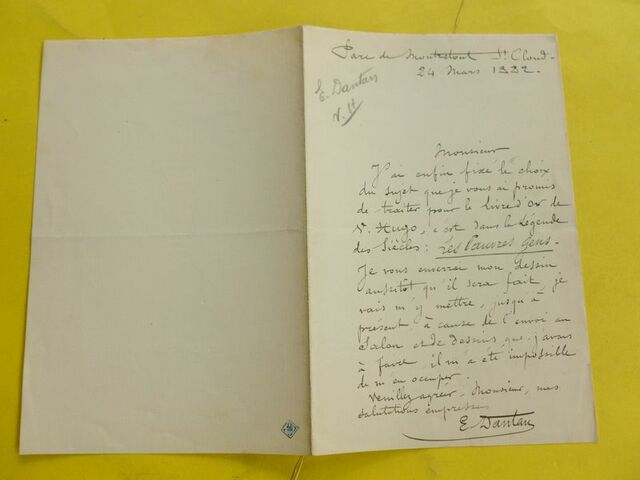 Parc de Montretout St Cloud.
24 Mars 1882.
E. Dantan
V. H
Monsieur
J'ai enfin fixé le choix
du sujet que je vous ai promis
de traiter pour le livre d'or de
V. Hugo, c'est dans la Légende
des Siècles: Les Pauvres Gens.
Je vous enverrai mon dessin
aussitôt qu'il sera fait, je
vais m'y mettre, jusqu'à
présent, à cause de l'envoi au
Salon et de dessins que j'avais
à faire, il m'a été impossible
de m'en occuper.
Veuillez agréer, Monsieur, mes
salutations empressées
E. Dantan